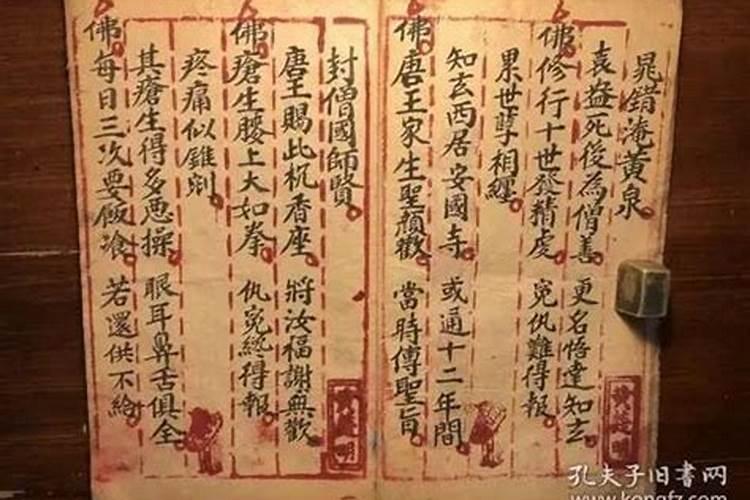 晁錯淹黄泉
袁盎死後為僧善 更名悟達知玄
佛修行十世發精虔 冤仇難得報
累世孽相纏
知玄西居安國寺 或通十二年間
佛唐王家生聖顏歡 當時傳聖旨
封僧國師賢
唐王賜此杋香座 將汝福謝無歡
佛瘡生腰上大如拳 仇冤終得報
疼痛似錐剜
其瘡生得多恶操 眼耳鼻舌俱全
佛每日三次要飯飡 若還供不給
孔夫子旧书网